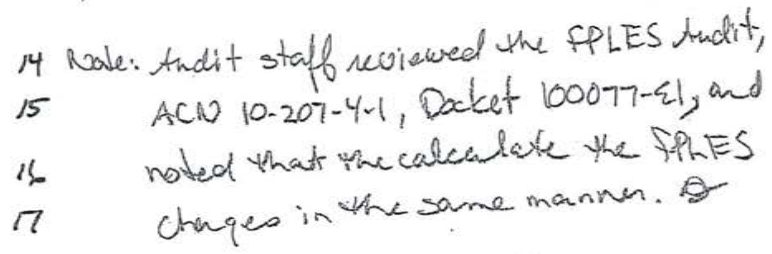 14 Note: Audit staff reviewed the FPLES Audit,
15 ACN 10-207-4-1, Docket 100077-EI, and
16 noted that the calculate the FPLES
17 charges in the same manner.